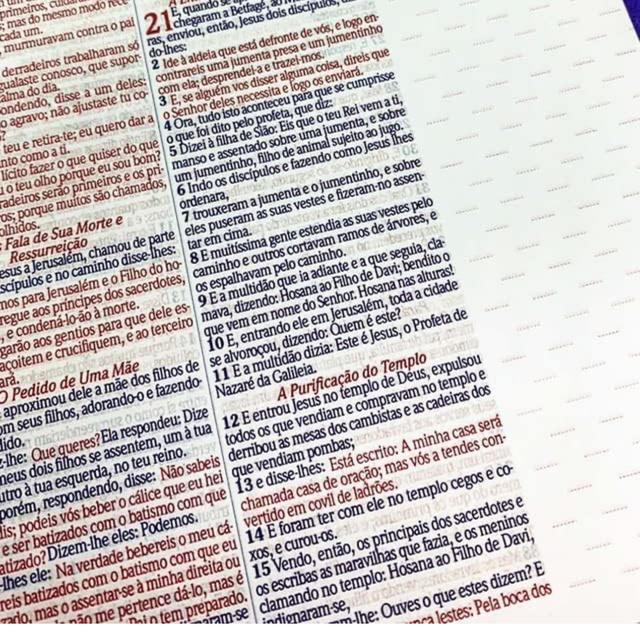 primeiros,
; mas do mesmo modo
ada um.
, murmuravam contra o pai
derradeiros trabalharam só
gualaste conosco, que supor-
alma do dia.
ondendo, disse a um deles:
o agravo; não ajustaste tu co-
?
teu e retira-te; eu quero dar a
nto como a ti.
lícito fazer o que quiser do que
u o teu olho porque eu sou bom?
radeiros serão primeiros e os pri-
ros; porque muitos são chamados,
olhidos.
Fala de Sua Morte e
Ressurreição
esus a Jerusalém, chamou de parte
scípulos e no caminho disse-lhes:
mos para Jerusalém e o Filho do ho-
regue aos príncipes dos sacerdotes,
, e condená-lo-ão à morte.
garão aos gentios para que dele es-
açoitem e crucifiquem, e ao terceiro
ará.
O Pedido de Uma Mãe
aproximou dele a mãe dos filhos de
om seus filhos, adorando-o e fazendo-
dido.
z-lhe: Que queres? Ela respondeu: Dize
meus dois filhos se assentem, um à tua
utro à tua esquerda, no teu reino.
porém, respondendo, disse: Não sabeis
dis; podeis vós beber o cálice que eu hei
e ser batizados com o batismo com que
atizado? Dizem-lhe eles: Podemos.
-lhes ele: Na verdade bebereis o meu cá-
reis batizados com o batismo com que eu
zado, mas o assentar-se à minha direita ou
não me pertence dá-lo, mas é
Pai o tem preparado.
aram-se
21 E, quando se
chegaram a Betfagé, ao
ras, enviou, então, Jesus dois discípulos,
do-lhes:
2 Ide à aldeia que está defronte de vós, e logo en-
contrareis uma jumenta presa e um jumentinho
com ela; desprendei-a e trazei-mos.
3 E, se alguém vos disser alguma coisa, direis que
o Senhor deles necessita e logo os enviará.
4 Ora, tudo isto aconteceu para que se cumprisse
o que foi dito pelo profeta, que diz:
5 Dizei à filha de Sião: Eis que o teu Rei vem a ti,
manso e assentado sobre uma jumenta, e sobre
um jumentinho, filho de animal sujeito ao jugo.
6 Indo os discípulos e fazendo como Jesus lhes
ordenara,
7 trouxeram a jumenta e o jumentinho, e sobre
eles puseram as suas vestes e fizeram-no assen-
tar em cima.
8 E muitíssima gente estendia as suas vestes pelo
caminho e outros cortavam ramos de árvores, e
os espalhavam pelo caminho.
9 E a multidão que ia adiante e a que seguia, cla-
mava, dizendo: Hosana ao Filho de Davi; bendito o
que vem em nome do Senhor. Hosana nas alturas!
10 E, entrando ele em Jerusalém, toda a cidade
se alvoroçou, dizendo: Quem é este?
11 E a multidão dizia: Este é Jesus, o Profeta de
Nazaré da Galileia.
A Purificação do Templo
12 E entrou Jesus no templo de Deus, expulsou
todos os que vendiam e compravam no templo e
derribou as mesas dos cambistas e as cadeiras dos
que vendiam pombas;
13 e disse-lhes: Está escrito: A minha casa será
chamada casa de oração; mas vós a tendes con-
vertido em covil de ladrões.
14 E foram ter com ele no templo cegos e co-
xos, e curou-os.
15 Vendo, então, os principais dos sacerdotes e
os escribas as maravilhas que fazia, e os meninos
clamando no templo: Hosana ao Filho de Davi,
indignaram-se,
m-lhe: Ouves o que estes dizem? E
lestes: Pela boca dos